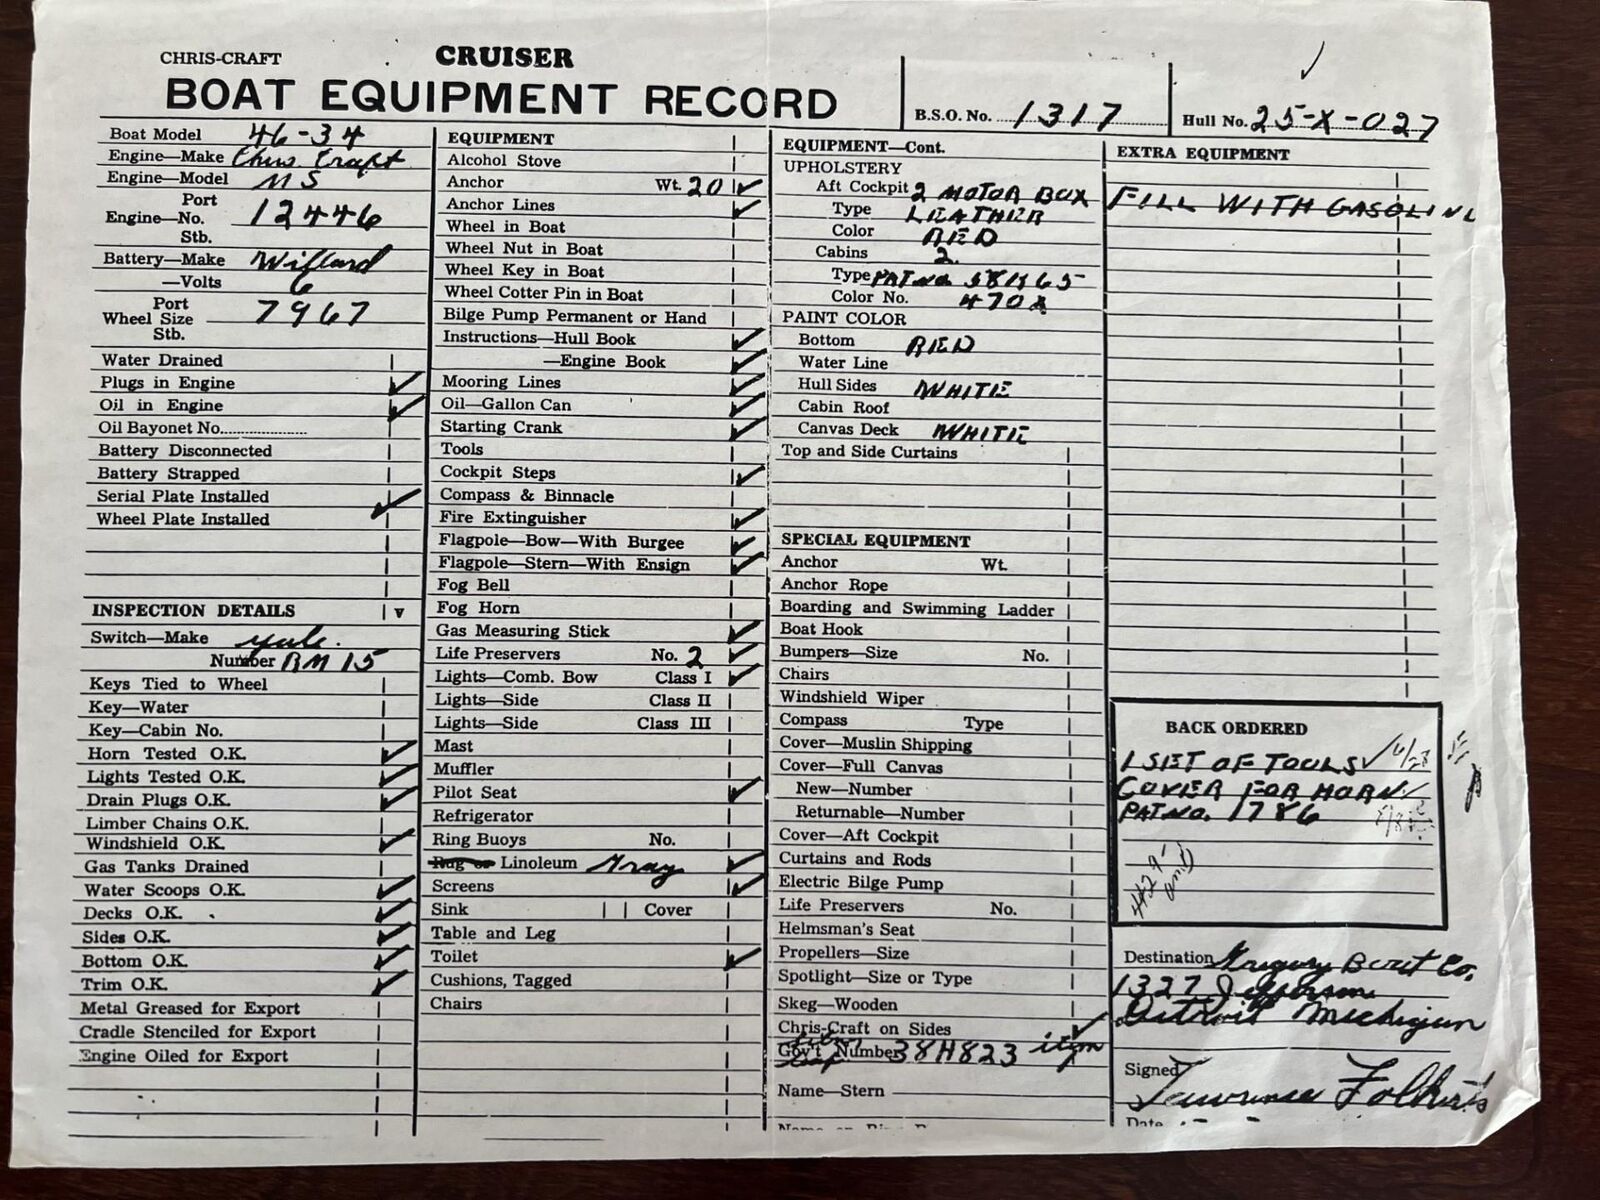 CHRIS-CRAFT CRUISER
BOAT EQUIPMENT RECORD
B.S.O. No. 1317
Hull No. 25-X-027
Boat Model 46-34
Engine—Make Chris Craft
Engine—Model MS
Port
Engine—No. 12446
Stb.
Battery—Make Willard
—Volts 6
Port
Wheel Size 7967
Stb.
Water Drained
Plugs in Engine ✓
Oil in Engine ✓
Oil Bayonet No..................
Battery Disconnected
Battery Strapped
Serial Plate Installed ✓
Wheel Plate Installed
INSPECTION DETAILS v
Switch—Make Yale.
Number RM 15
Keys Tied to Wheel
Key—Water
Key—Cabin No.
Horn Tested O.K. ✓
Lights Tested O.K. ✓
Drain Plugs O.K. ✓
Limber Chains O.K.
Windshield O.K. ✓
Gas Tanks Drained
Water Scoops O.K. ✓
Decks O.K. ✓
Sides O.K. ✓
Bottom O.K. ✓
Trim O.K. ✓
Metal Greased for Export
Cradle Stenciled for Export
Engine Oiled for Export
EQUIPMENT
Alcohol Stove
Anchor Wt. 20 ✓
Anchor Lines ✓
Wheel in Boat
Wheel Nut in Boat
Wheel Key in Boat
Wheel Cotter Pin in Boat
Bilge Pump Permanent or Hand
Instructions—Hull Book ✓
—Engine Book ✓
Mooring Lines ✓
Oil—Gallon Can ✓
Starting Crank ✓
Tools
Cockpit Steps ✓
Compass & Binnacle
Fire Extinguisher ✓
Flagpole—Bow—With Burgee ✓
Flagpole—Stern—With Ensign ✓
Fog Bell
Fog Horn
Gas Measuring Stick ✓
Life Preservers No. 2 ✓
Lights—Comb. Bow Class I ✓
Lights—Side Class II
Lights—Side Class III
Mast
Muffler
Pilot Seat ✓
Refrigerator
Ring Buoys No.
Rug or Linoleum Gray ✓
Screens ✓
Sink Cover
Table and Leg
Toilet ✓
Cushions, Tagged
Chairs
EQUIPMENT—Cont.
UPHOLSTERY
Aft Cockpit 2 MOTOR BOX
Type LEATHER
Color RED
Cabins 2.
Type PAT NO.
Color No. 470X
PAINT COLOR
Bottom RED
Water Line
Hull Sides WHITE
Cabin Roof
Canvas Deck WHITE
Top and Side Curtains
SPECIAL EQUIPMENT
Anchor Wt.
Anchor Rope
Boarding and Swimming Ladder
Boat Hook
Bumpers—Size No.
Chairs
Windshield Wiper
Compass Type
Cover—Muslin Shipping
Cover—Full Canvas
New—Number
Returnable—Number
Cover—Aft Cockpit
Curtains and Rods
Electric Bilge Pump
Life Preservers No.
Helmsman's Seat
Propellers—Size
Spotlight—Size or Type
Skeg—Wooden
Chris-Craft on Sides ✓
Gov't Number 38H823 item
Name—Stern
EXTRA EQUIPMENT
FILL WITH GASOLINE
BACK ORDERED
1 SET OF TOOLS ✓
COVER FOR HORN
PAT NO. 1786
Destination Gregory Boat Co.
1327 Jefferson
Detroit Michigan
Signed
Lawrence Folkerts
Date